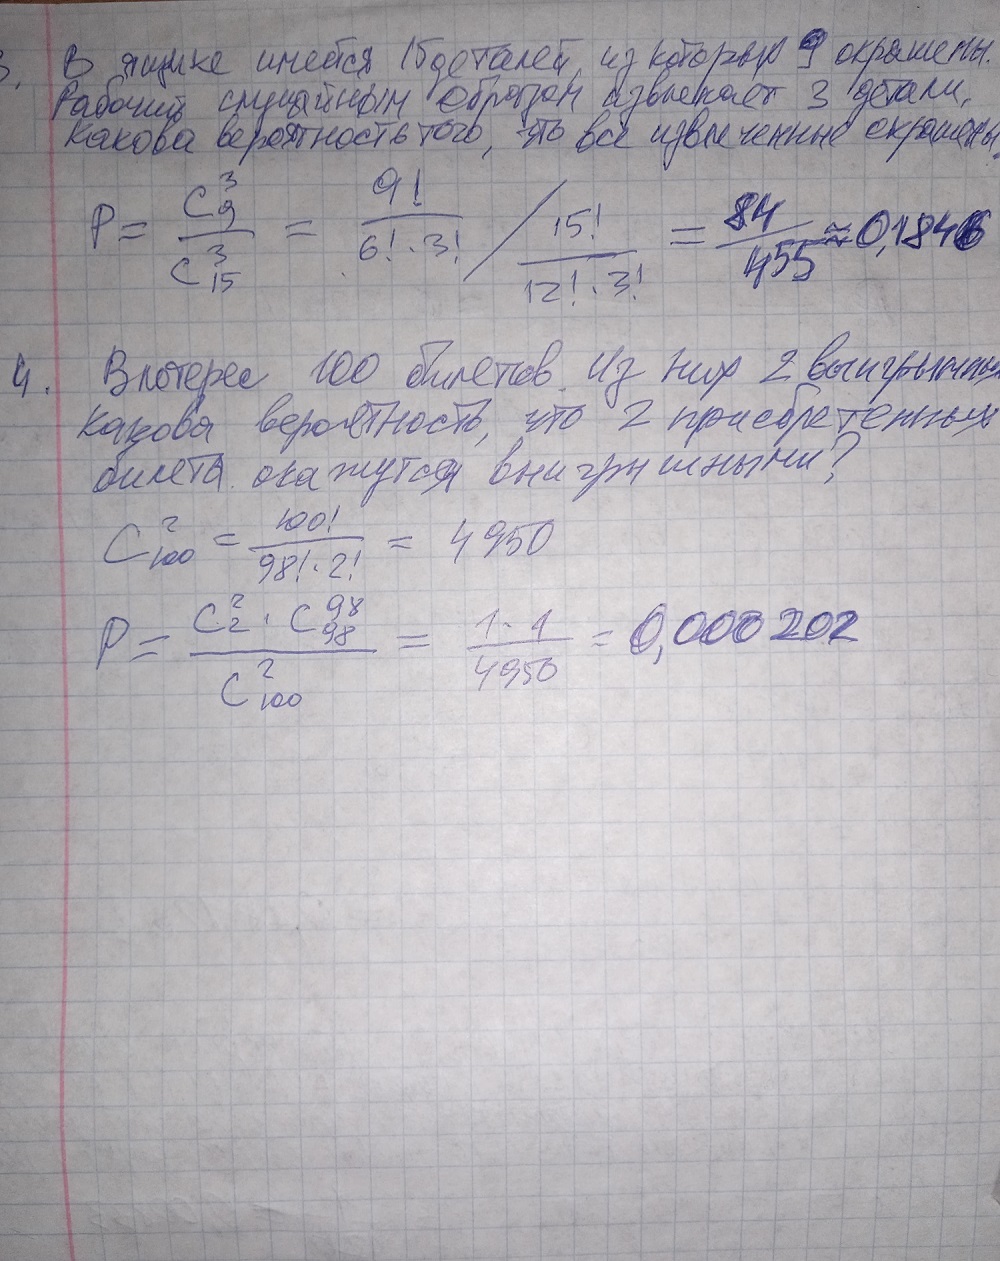 3. В ящике имеется 15 деталей, из которых 9 окрашены.
Рабочий случайным образом извлекает 3 детали.
Какова вероятность того, что все извлеченные окрашены.
P = C₉³ / C₁₅³ = 9! / (6! · 3!) / 15! / (12! · 3!) = 84 / 455 ≈ 0,1846
4. В лотерее 100 билетов. Из них 2 выигрышных.
Какова вероятность, что 2 приобретенных
билета окажутся выигрышными?
C₁₀₀² = 100! / (98! · 2!) = 4950
P = C₂² · C₉₈⁹⁸ / C₁₀₀² = 1 · 1 / 4950 = 0,000202